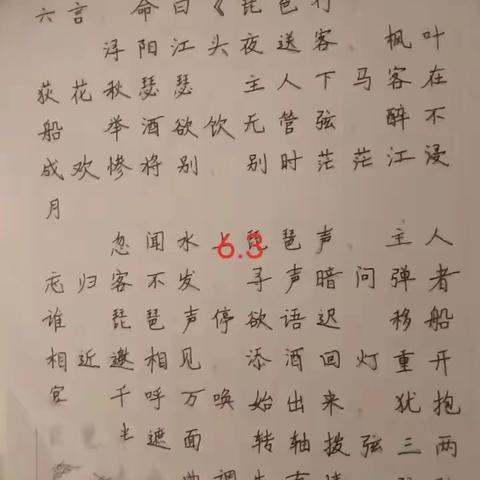 六言 命曰《琵琶行
浔阳江头夜送客 枫叶
荻花秋瑟瑟 主人下马客在
船 举酒欲饮无管弦 醉不
成欢惨将别 别时茫茫江浸
月
忽闻水上琵琶声 主人
忘归客不发 寻声暗问弹者
谁 琵琶声停欲语迟 移船
相近邀相见 添酒回灯重开
宴 千呼万唤始出来 犹抱
半遮面 转轴拨弦三两
6.3